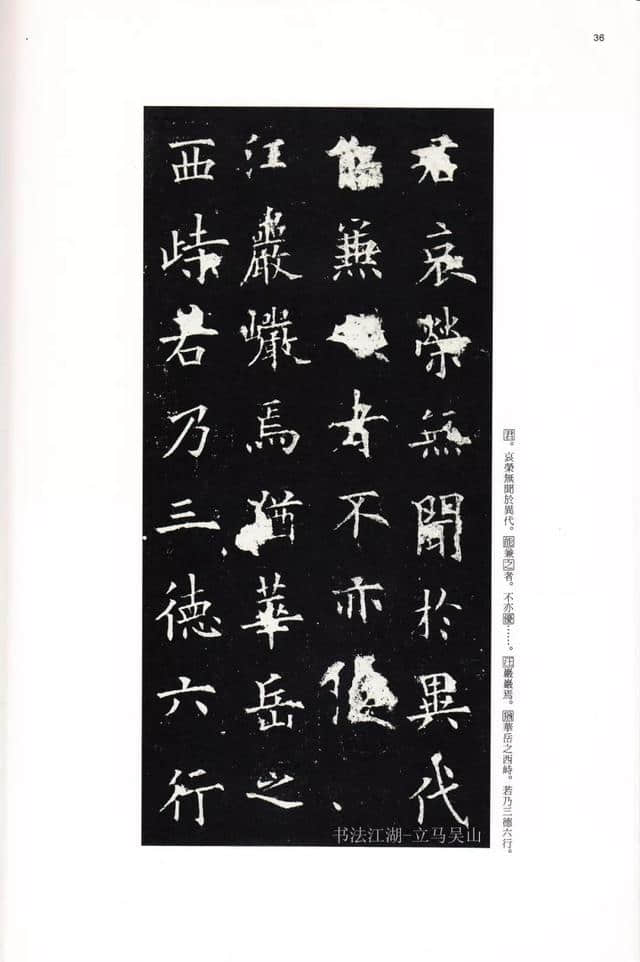 36
君哀榮無聞於異代
能兼者不亦優
汪巖巖焉猶華岳之
西峙若乃三德六行
君。哀榮無聞於異代。能兼之者。不亦優……。汪巖巖焉。猶華岳之西峙。若乃三德六行。
书法江湖-立马吴山